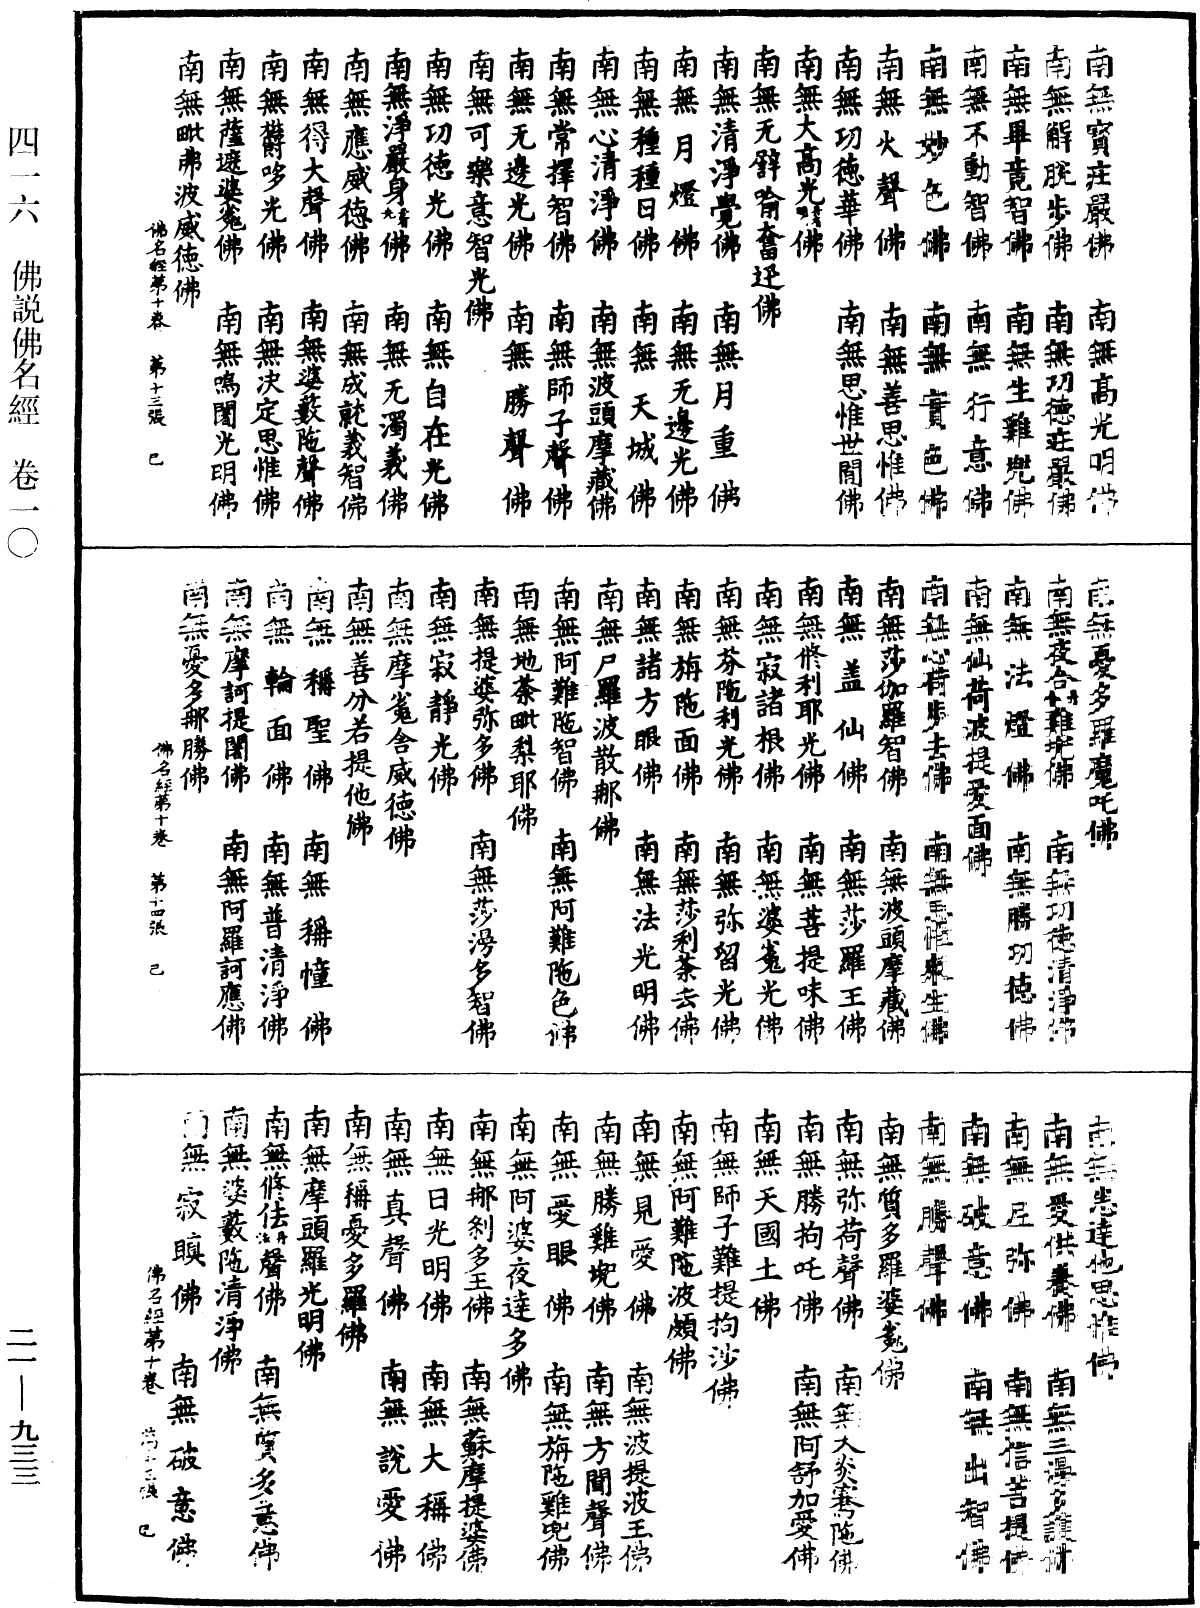 南無寶莊嚴佛　南無高光明佛
南無解脫步佛　南無功德莊嚴佛
南無畢竟智佛　南無生難兜佛
南無不動智佛　南無行意佛
南無妙色佛　南無實色佛
南無火聲佛　南無善思惟佛
南無功德華佛　南無思惟世間佛
南無大高光佛
南無无譬喻奮迅佛
南無清淨覺佛　南無月重佛
南無月燈佛　南無无邊光佛
南無種種日佛　南無天城佛
南無心清淨佛　南無波頭摩藏佛
南無常擇智佛　南無師子聲佛
南無无邊光佛　南無勝聲佛
南無可樂意智光佛
南無功德光佛　南無自在光佛
南無淨嚴身佛　南無无濁義佛
南無應威德佛　南無成就義智佛
南無得大聲佛　南無婆藪陁聲佛
南無欝哆光佛　南無決定思惟佛
南無薩遮婆㝹佛　南無鳴闍光明佛
南無毗弗波威德佛
佛名經第十卷　第十三張　巳
南無憂多羅魔吒佛
南無夜合難㘽佛　南無功德清淨佛
南無法燈佛　南無勝功德佛
南無仙荷波提愛面佛
南無心荷步去佛　南無思惟衆生佛
南無莎伽羅智佛　南無波頭摩藏佛
南無盖仙佛　南無莎羅王佛
南無脩利耶光佛　南無菩提味佛
南無寂諸根佛　南無婆㝹光佛
南無芬陁利光佛　南無弥留光佛
南無栴陁面佛　南無莎利荼去佛
南無諸方眼佛　南無法光明佛
南無尸羅波散那佛
南無阿難陁智佛　南無阿難陁色佛
南無地荼毗梨耶佛
南無提婆弥多佛　南無莎漫多智佛
南無寂靜光佛
南無摩㝹舍威德佛
南無善分若提他佛
南無稱聖佛　南無稱憧佛
南無輪面佛　南無普清淨佛
南無摩訶提闍佛　南無阿羅訶應佛
南無憂多那勝佛
佛名經第十卷　第十四張　巳
南無悉達他思惟佛
南無愛供養佛　南無三漫多護佛
南無尼弥佛　南無信菩提佛
南無破意佛　南無出智佛
南無勝聲佛
南無質多羅婆㝹佛
南無弥荷聲佛　南無大炎䮾陁佛
南無勝拘吒佛　南無阿舒加愛佛
南無天國土佛
南無師子難提拘沙佛
南無阿難陁波頗佛
南無見愛佛　南無波提波王佛
南無勝難兜佛　南無方聞聲佛
南無愛眼佛　南無栴陁難兜佛
南無阿婆夜達多佛
南無那刹多王佛　南無蘇摩提婆佛
南無日光明佛　南無大稱佛
南無真聲佛　南無說愛佛
南無稱憂多羅佛
南無摩頭羅光明佛
南無脩佉聲佛　南無質多意佛
南無婆藪陁清淨佛
南無寂瞋佛　南無破意佛
佛名經第十卷　第十五張　巳
四一六　佛說佛名經　卷一〇
二一—九三三